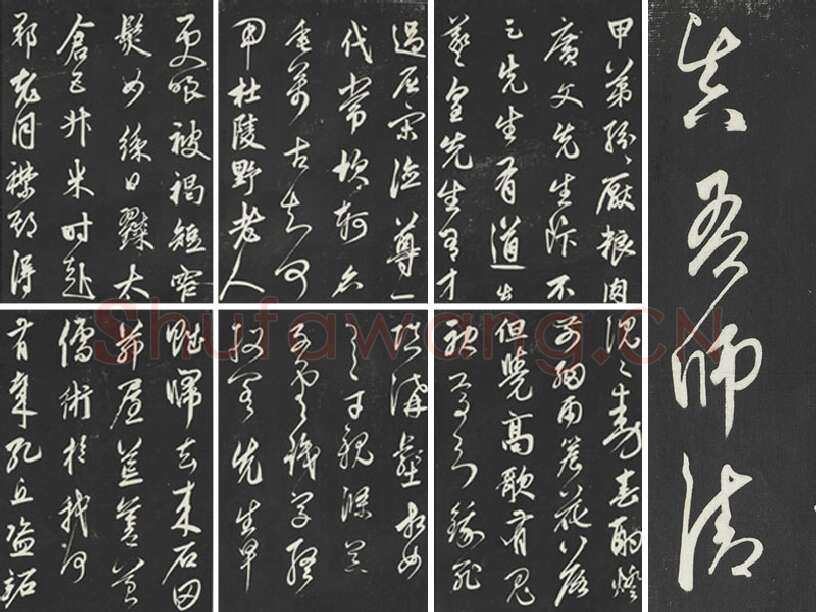 甲第紛紛厭粱肉
廣文先生飯不
足先生有道出
羲皇先生有才
過屈宋德尊一
代常坎軻名
垂萬古知何
用杜陵野老人
更嗤被褐短窄
鬢如絲日糴太
倉五升米時赴
鄭老同襟期得
真吾師清
沉沉動春酌燈
前細雨簷花落
但覺高歌有鬼
神焉知餓死
填溝壑相如
逸才親滌器
子雲識字終
投閣先生早
賦歸去來石田
茅屋荒蒼苔
儒術於我何
有哉孔丘盜跖
Shufawang.CN